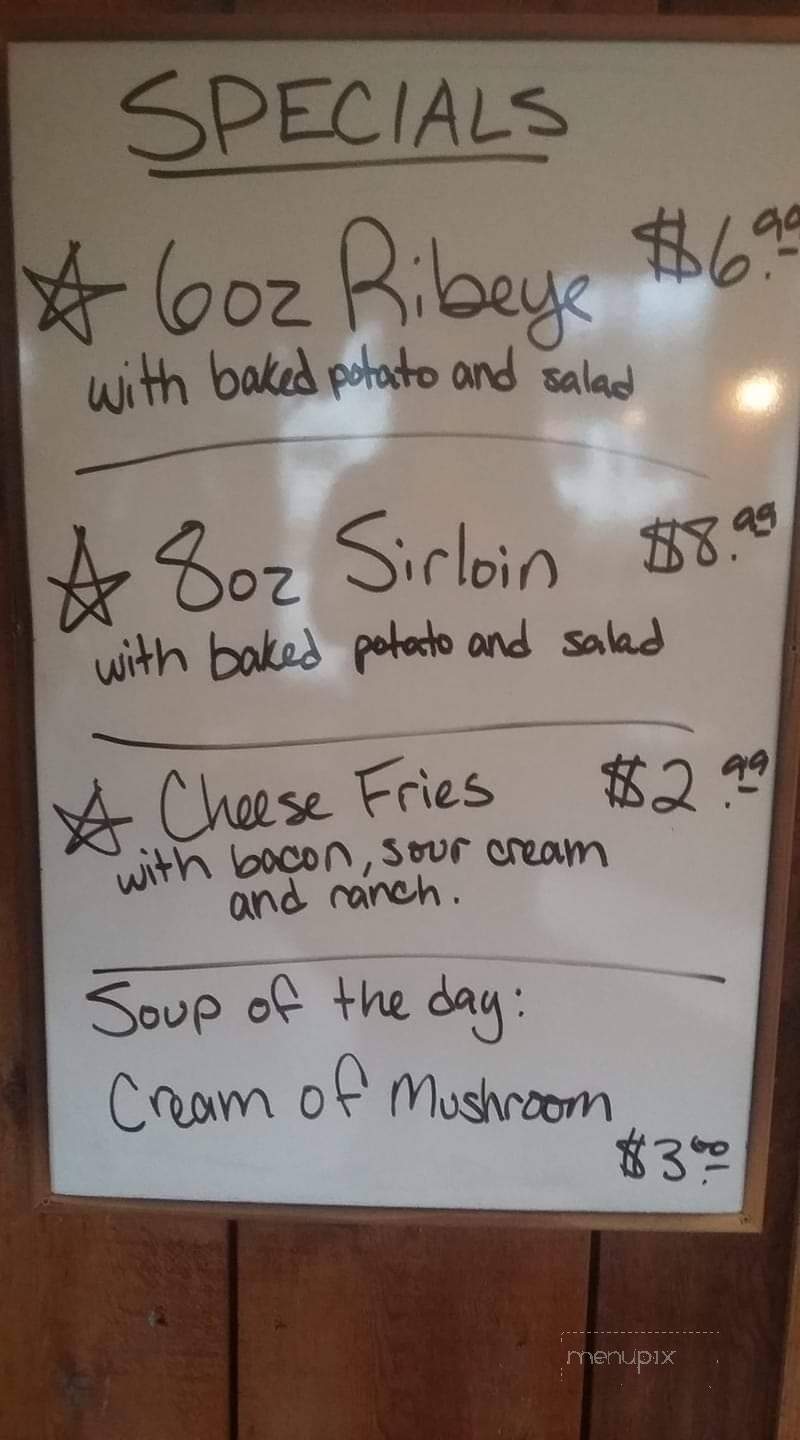 SPECIALS
☆ 6oz Ribeye $6.99
with baked potato and salad
☆ 8oz Sirloin $8.99
with baked potato and salad
☆ Cheese Fries $2.99
with bacon, sour cream
and ranch.
Soup of the day:
Cream of Mushroom
$3.00
menupix